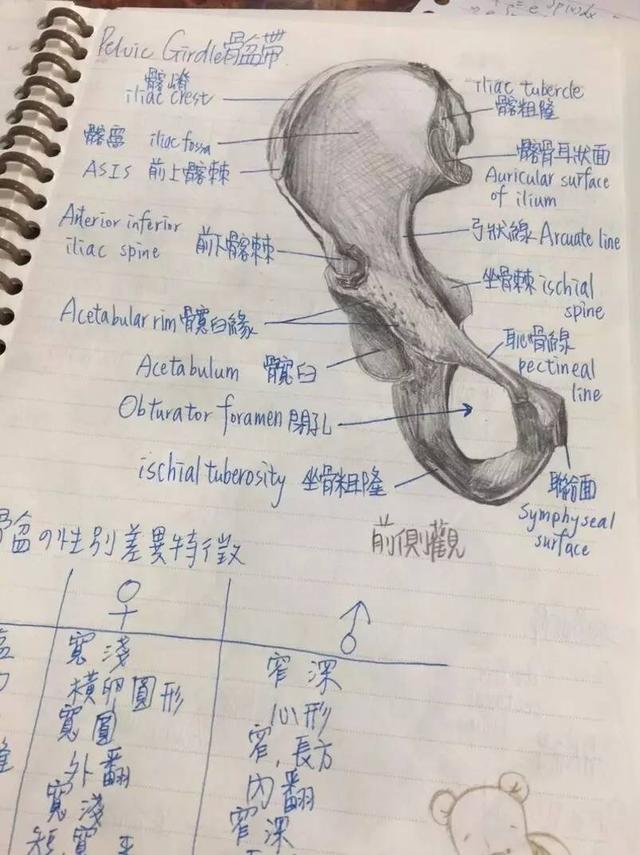 Pelvic Girdle 骨盆帶
髂嵴
iliac crest
iliac tubercle
髂粗隆
髂窩 iliac fossa
髂骨耳狀面
Auricular surface
of ilium
ASIS 前上髂棘
Anterior inferior
iliac spine 前下髂棘
弓狀線 Arcuate line
坐骨棘 ischial
spine
Acetabular rim 髖臼緣
恥骨線
pectineal
line
Acetabulum 髖臼
Obturator foramen 閉孔
ischial tuberosity 坐骨粗隆
聯合面
Symphyseal
surface
前側觀
骨盆の性別差異特徵
♀ ♂
寬淺 窄深
橫卵圓形 心形
寬圓 窄,長方
外翻 內翻
寬淺 窄深
短寬